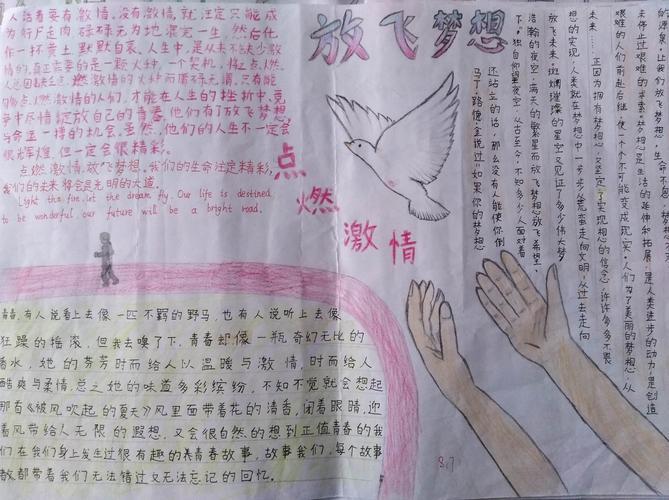 放飞梦想
点燃激情
人活着要有激情。没有激情，就注定只能成
为行尸走肉，碌碌无为地混完一生，然后化
作一抔黄土，默默自哀。人生中，是从来不缺少激
情的，真正需要的是一颗火种，一个契机，将之点燃。
人总因缺乏点燃激情的火种而庸碌无谓。只有能
够点燃激情的人们，才能在人生的挫折中，竞
争中尽情绽放自己的青春。他们有了放飞梦想，
与命运一搏的机会。虽然，他们的人生不一定会
很辉煌，但一定会很精彩。
点燃激情，放飞梦想。我们的生命注定精彩，
我们的未来将会是光明的大道。
Light the fire, let the dream fly. Our life is destined
to be wonderful, our future will be a bright road.
青春，有人说看上去像一匹不羁的野马，也有人说听上去像
狂躁的摇滚，但我去嗅了下，青春却像一瓶奇幻无比的
香水，她的芬芳时而给人以温暖与激情，时而给人
酷爽与柔情，总之她的味道多彩缤纷，不知不觉就会想起
那首《被风吹起的夏天》风里面带着花的清香，闭着眼睛，迎
着风带给人无限的遐想，又会很自然的想到正值青春的我
们在我们身上发生过很有趣的青春故事，故事我们，每个故事
都带着我们无法错过又无法忘记的回忆。
的源泉，让我们放飞
未停止过艰难的求索。梦想是生活的延伸和拓展，是人类进步的动力，是创造
艰难的人们前赴后继，使一个个不可能变成现实。人们为了美丽的梦想，从
未来……正因为拥有梦想，又坚定了实现想的信念，许许多多不畏
想的实现，人类就在梦想中一步步从荒蛮走向文明，从过去走向
放飞未来。斑斓璀璨的星空又见证了多少伟大梦
浩瀚的夜空，满天的繁星而放飞梦想放飞希望，
下，独自仰望夜空，从古至今，不知多少人面对着
还站立的话，那么没有人能使你倒
马丁路德金说过"如果你的梦想